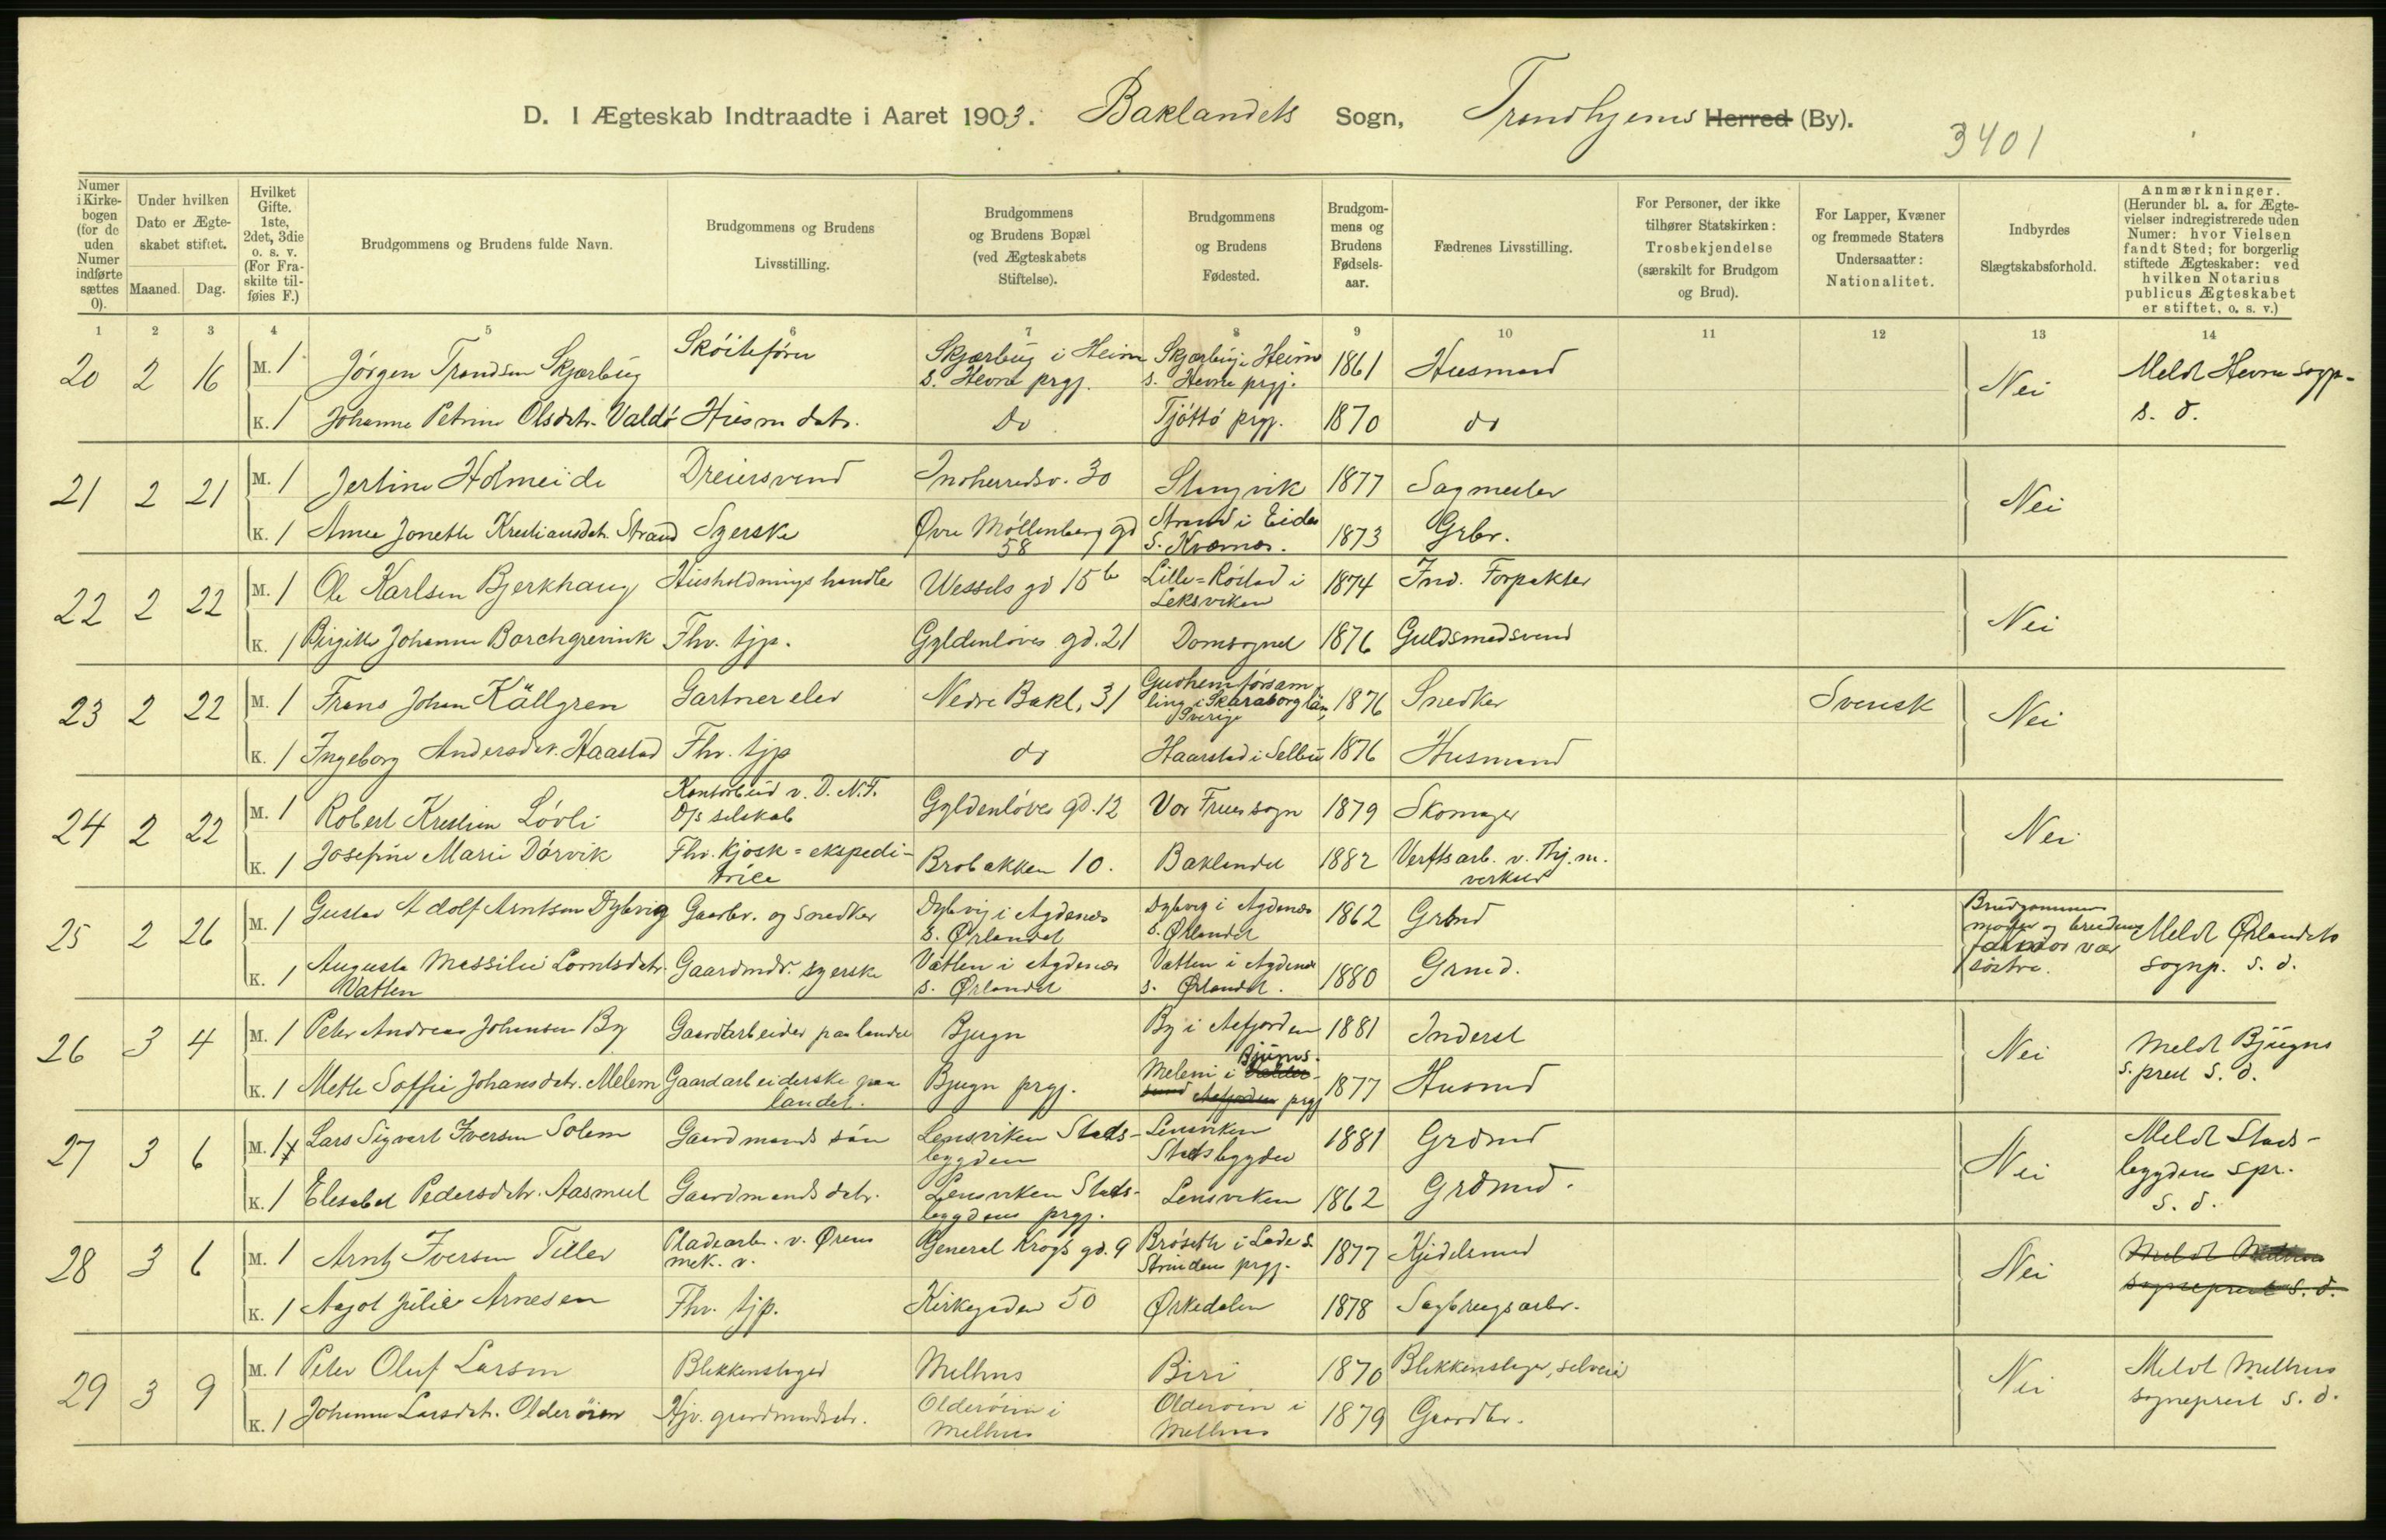 D. I Ægteskab Indtraadte i Aaret 1903. Baklandets Sogn, Trondhjems Herred (By).
3401
Numer i Kirkebogen (for de uden Numer indførte sættes 0).
Under hvilken Dato er Ægteskabet stiftet. Maaned. Dag.
Hvilket Gifte. 1ste, 2det, 3die o. s. v. (For Fraskilte tilføies F.)
Brudgommens og Brudens fulde Navn.
Brudgommens og Brudens Livsstilling.
Brudgommens og Brudens Bopæl (ved Ægteskabets Stiftelse).
Brudgommens og Brudens Fødested.
Brudgommens og Brudens Fødselsaar.
Fædrenes Livsstilling.
For Personer, der ikke tilhører Statskirken: Trosbekjendelse (særskilt for Brudgom og Brud).
For Lapper, Kvæner og fremmede Staters Undersaatter: Nationalitet.
Indbyrdes Slægtskabsforhold.
Anmærkninger. (Herunder bl. a. for Ægtevielser indregistrerede uden Numer: hvor Vielsen fandt Sted; for borgerlig stiftede Ægteskaber: ved hvilken Notarius publicus Ægteskabet er stiftet, o. s. v.)
1 2 3 4 5 6 7 8 9 10 11 12 13 14
20 2 16 M. 1 Jörgen Trondsen Skjærbug Sköitefører Skjærbug i Heim s. Hevne prgj. Skjærbug i Heim s. Hevne prgj. 1861 Husmand Nei Meldt Hevne sogp. s. d.
K. 1 Johanne Petrine Olsdtr. Valdö Husm datr. Do Tjöttö prgj. 1870 do
21 2 21 M. 1 Jertinu Holmeide Dreiersvend Inherredsv. 30 Stangvik 1877 Sagmester Nei
K. 1 Anne Jonette Kristiansdtr. Strand Syerske Øvre Möllenberg gd 58 Strand i Eide s. Kvernes. 1873 Grbr.
22 2 22 M. 1 Ole Karlsen Bjerkhaug Husholdningshandler Wessels gd 15b Lille-Röstad i Leksviken 1874 Ind. Forpakter Nei
K. 1 Birgitte Johanne Borchgrevink Fhv. tjp. Gyldenlöves gd. 21 Domsognet 1876 Guldsmedsvend
23 2 22 M. 1 Frans Johan Källgren Gartnerelev Nedre Bakl. 31 Gudhem församling i Skaraborg län, Sverige 1876 Snedker Svensk Nei
K. 1 Ingeborg Andersdtr. Haarstad Fhv. tjp do Haarstad i Selbu 1876 Husmand
24 2 22 M. 1 Robert Kristian Lövli Kontorbud v. D. N. F. D/s selskab Gyldenlöves gd. 12 Vor Frues sogn 1879 Skomager Nei
K. 1 Josefine Marie Dörvik Fhv. Kjosk=ekspeditrice Brobakken 10. Baklandet 1882 Verftsarb. v. Thj. m. verksted
25 2 26 M. 1 Gustav Adolf Arntsen Dybvig Gaardbr. og Snedker Dybvig i Agdenes s. Ørlandet Dybvig i Agdenes s. Ørlandet 1862 Grbmd Brudgommens moder og brudens farmor var söstre. Meldt Ørlandets sognp. s. d.
K. 1 Augusta Massilie Lorntsdtr. Vatten Gaardmdr. syerske Vatten i Agdenes s. Ørlandet Vatten i Agdenes s. Ørlandet. 1880 Grmd.
26 3 4 M. 1 Peter Andreas Johansen By Gaardarbeider paa landet Bjugn By i Aafjorden 1881 Inderst Nei Meldt Bjugns s. prest s. d.
K. 1 Mette Soffie Johansdtr. Melem Gaardarbeiderske paa landet. Bjugn prgj. Melem i Bjugns. prgj 1877 Husmd
27 3 6 M. 1 Lars Sigvart Iversen Solem Gaardmands sön Lensviken Stadsbygden Lensviken Stadsbygden 1881 Grdmd Nei Meldt Stadsbygden spr. s. d.
K. 1 Elisabet Pedersdtr. Aasmul Gaardmands datr. Lensviken Stadsbygdens prgj. Lensviken 1862 Grdmd.
28 3 6 M. 1 Arnt Iversen Tiller Pladearb. v. Ørens mek. v. General Krogs gd. 9 Bröseth i Lade s. Strindens prgj. 1877 Kjedelsmed Nei Meldt sogneprest s. d.
K. 1 Aagot Julie Arnesen Fhv. tjp. Kirkegaden 50 Ørkedalen 1878 Sagbrugsarb.
29 3 9 M. 1 Peter Oluf Larsen Blikkenslager Melhus Biri 1870 Blikkenslager, selveier Nei Meldt Melhus sogneprest s. d.
K. 1 Johanne Larsdtr. Olderöien Hjv. gaardmandsdtr. Olderöien i Melhus Olderöien i Melhus 1879 Gaardbr.